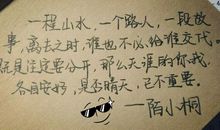 一程山水,一个路人,一段故
事,离去之时,谁也不必给谁交代。
既是注定要分开,那么天涯的你我,
各自安好,是否晴天,已不重要。
—陌小桐